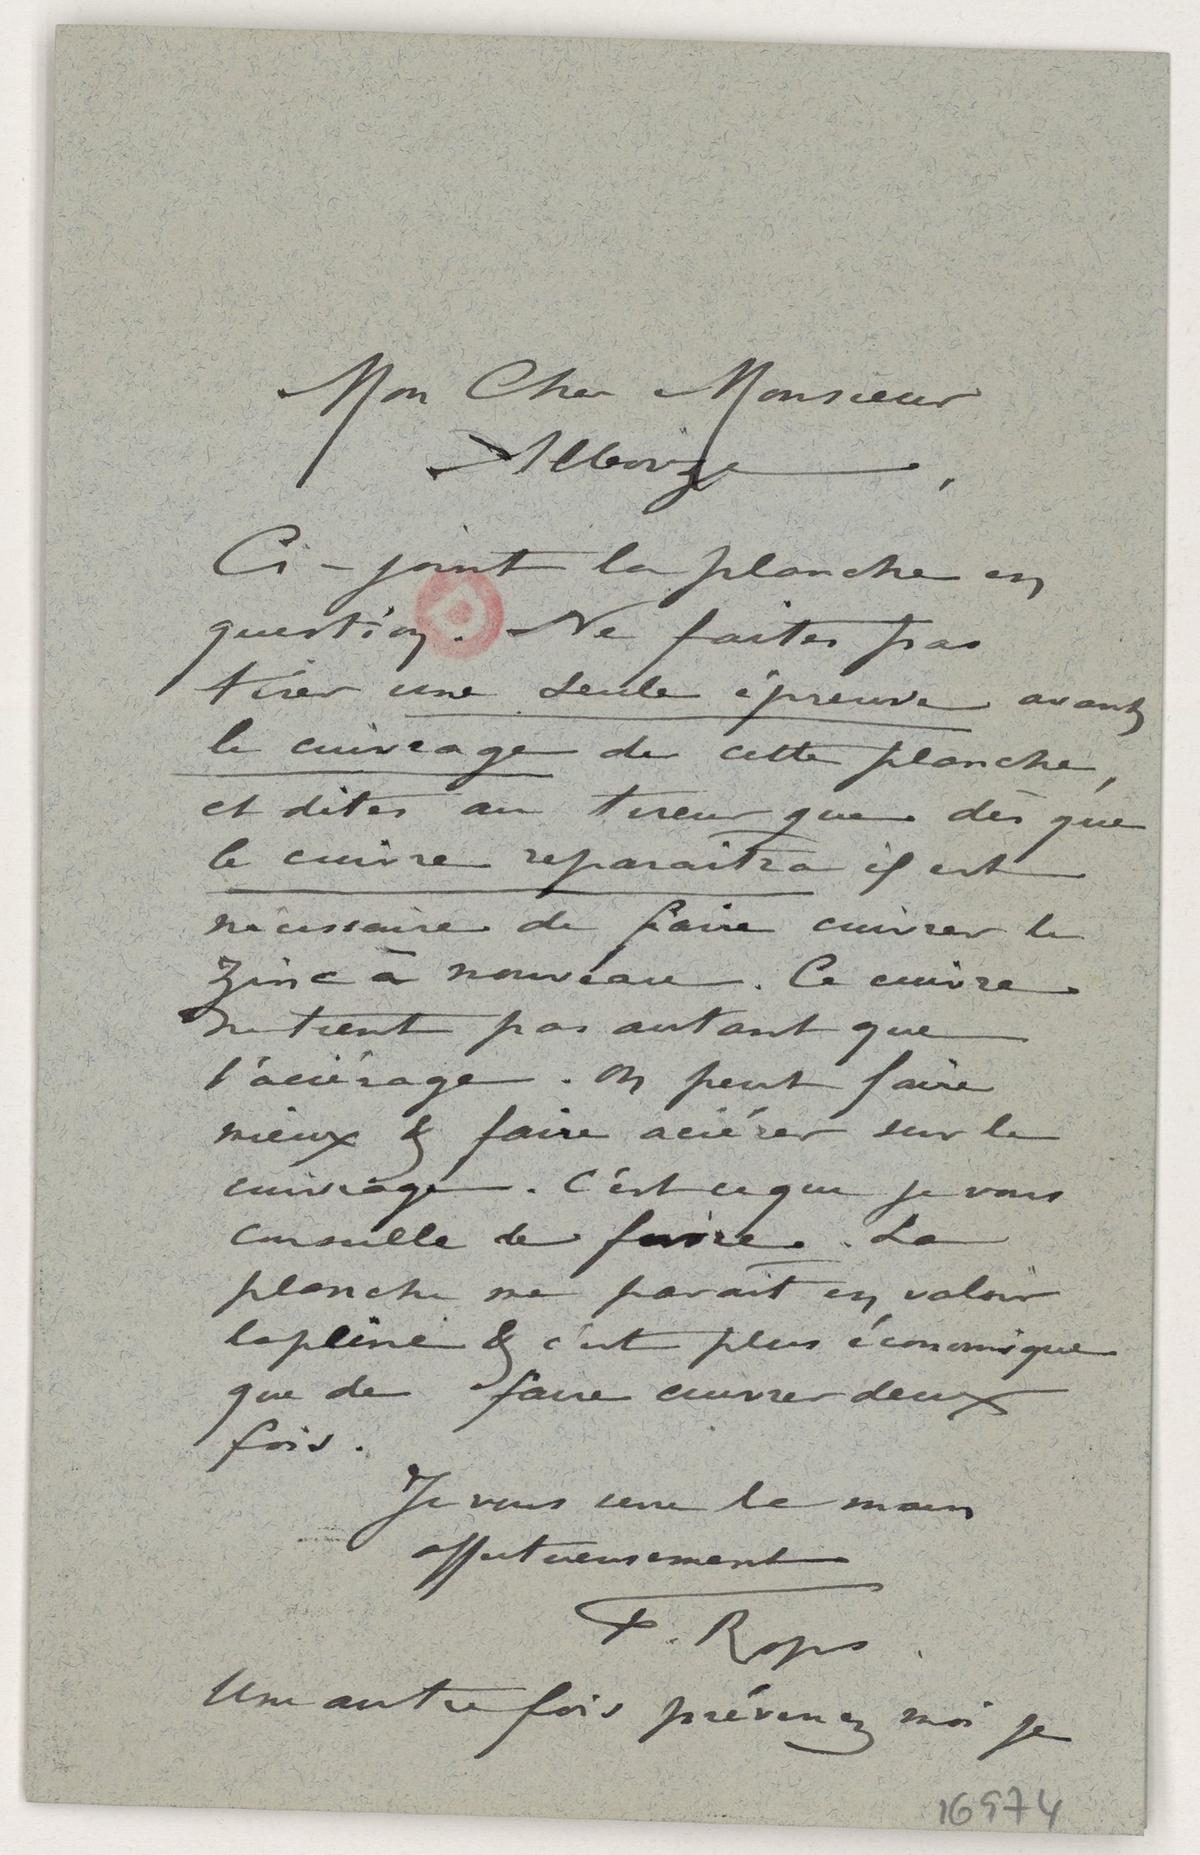 Mon Cher Monsieur
Ci-joint la planche en
question. Ne faites pas
tirer une seule épreuve avant
le cuivrage de cette planche,
et dites au tireur que dès que
le cuivre reparaîtra il est
nécessaire de faire cuivrer le
zinc à nouveau. Ce cuivre
ne tient pas autant que
l'aciérage. On peut faire
mieux & faire aciérer sur le
cuivrage. C'est ce que je vous
conseille de faire. La
planche me parait en valoir
la peine & c'est plus économique
que de faire cuivrer deux
fois.
Je vous serre la main
affectueusement
F. Rops
Une autre fois prévenez moi je
16974